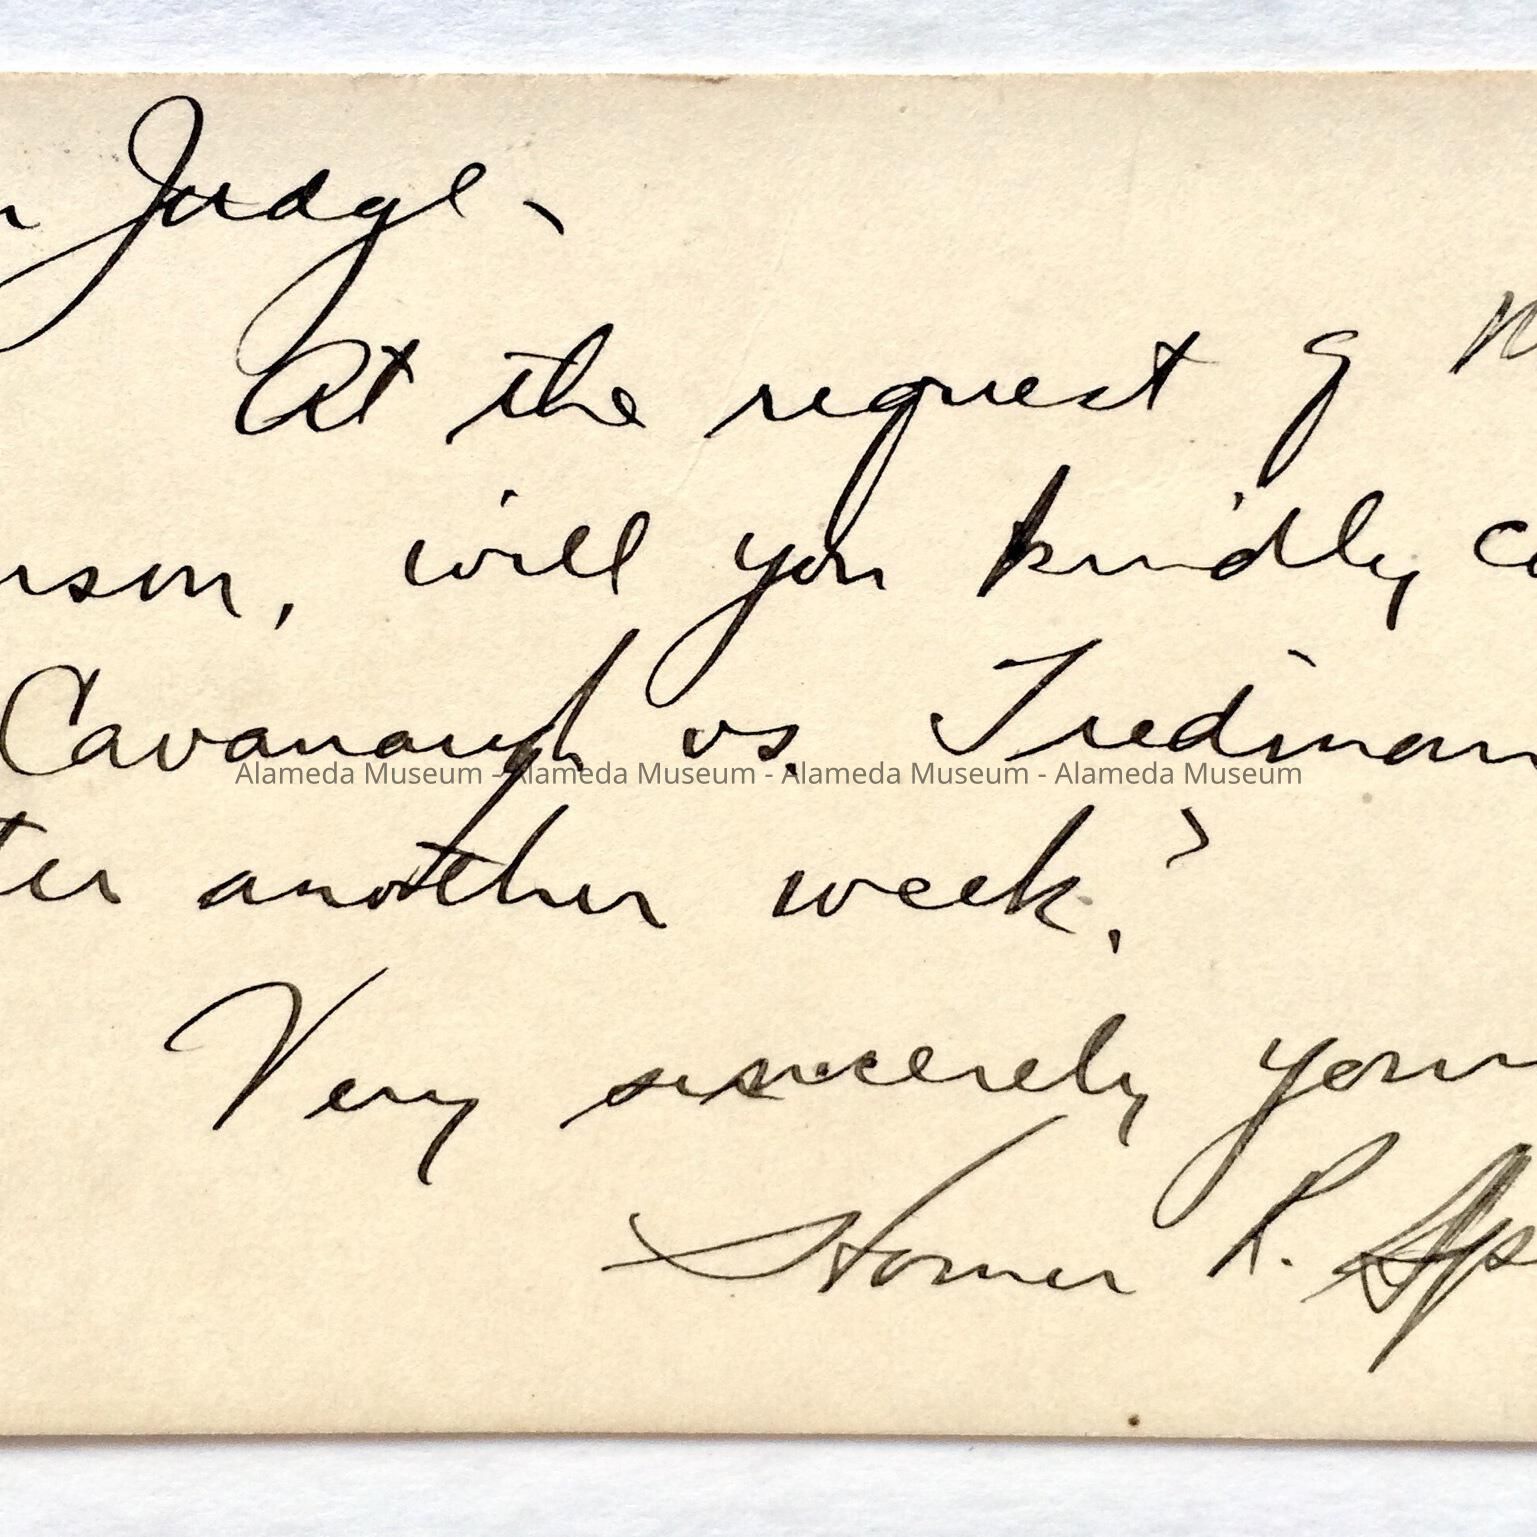 Judge,
At the request of M
nson, will you kindly co
Cavanaugh vs. Tredman
ter another week?
Very sincerely yours
Homer R. Sp
Alameda Museum - Alameda Museum - Alameda Museum - Alameda Museum